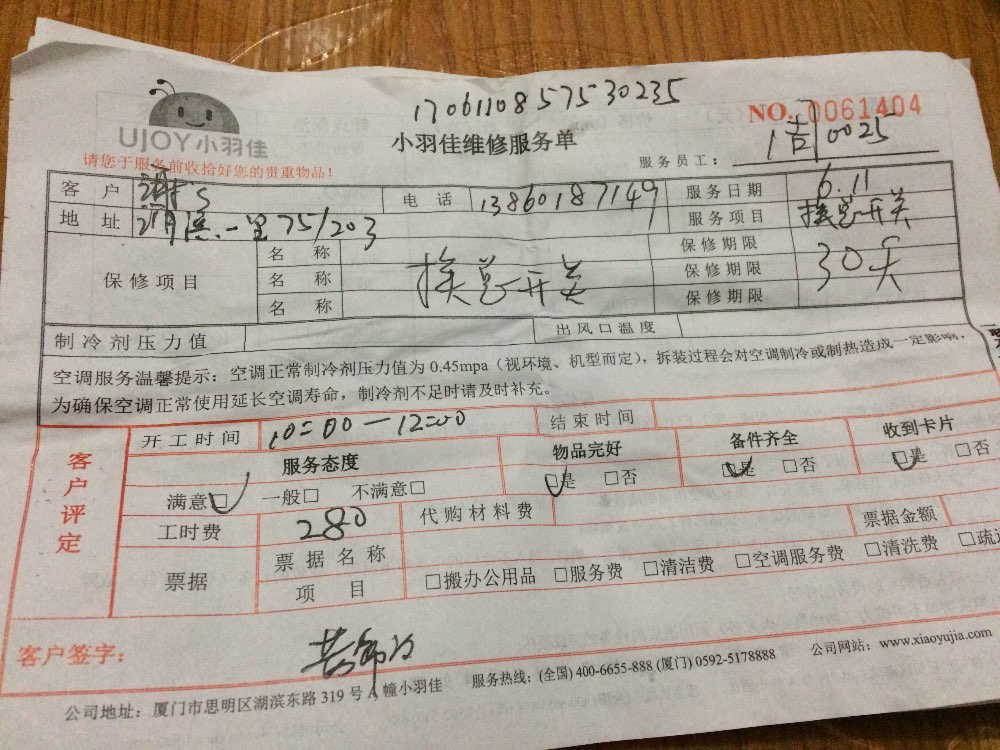 1706110857530235
NO. 0061404
UJOY小羽佳
小羽佳维修服务单
服务员工： 0025
请您于服务前收拾好您的贵重物品！
客 户 谢's 电 话 13860187149 服务日期 6.11
地 址 一里75/203 服务项目 换总开关
保修项目 名 称 换总开关 保修期限 30天
名 称 保修期限
名 称 保修期限
制冷剂压力值 出风口温度
空调服务温馨提示：空调正常制冷剂压力值为 0.45mpa（视环境、机型而定），拆装过程会对空调制冷或制热造成一定影响，
为确保空调正常使用延长空调寿命，制冷剂不足时请及时补充。
客户评定
开工时间 10:00—12:00 结束时间
服务态度 物品完好 备件齐全 收到卡片
满意□ 一般□ 不满意□ □是 □否 □是 □否 □是 □否
工时费 280 代购材料费 票据金额
票据 票据名称
项 目 □搬办公用品 □服务费 □清洁费 □空调服务费 □清洗费 □疏
客户签字：
公司地址：厦门市思明区湖滨东路 319 号 A 幢小羽佳 服务热线：(全国) 400-6655-888 (厦门) 0592-5178888 公司网站：www.xiaoyujia.com